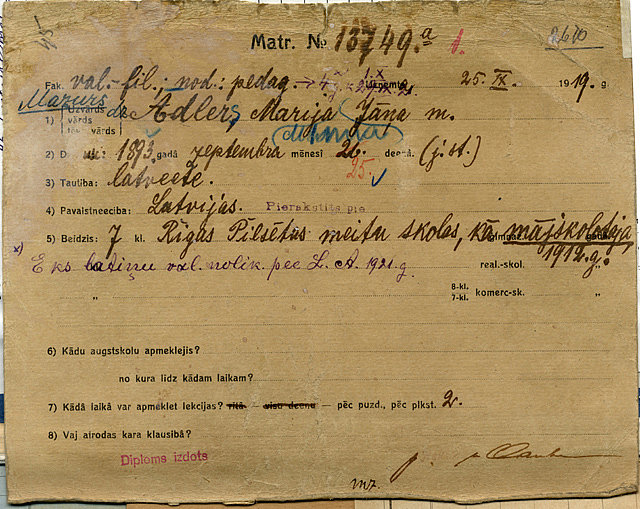 45
Matr. № 13749.a 1.
Fak. val.-fil.; nod.: pedag. 1.X uzņemts 25. IX. 1919. g
Mazurs
1) Uzvārds vārds tēv. vārds de Adlers, Marija Jāņa m.
2) Dzim.: 1893. gadā zeptembra mēnesī 26. deenā. (j. st.)
25.
3) Tautība: latveete.
4) Pavalstneecība: Latvijas. Pierakstīts pie
5) Beidzis: 7 kl. Rīgas Pilsētas meitu skolas, kā mājskolotāja
1912. g.
x) Eks latiņu val. nolik. pēc L. A. 1921. g. real.-skol. „
„ 8-kl. 7-kl. komerc-sk. „
6) Kādu augstskolu apmeklejis?
no kura līdz kādam laikam?
7) Kādā laikā var apmeklet lekcijas? rītā — visu deenu — pēc puzd., pēc plkst. 2.
8) Vaj airodas kara klausībā?
Diploms izdots
mz.